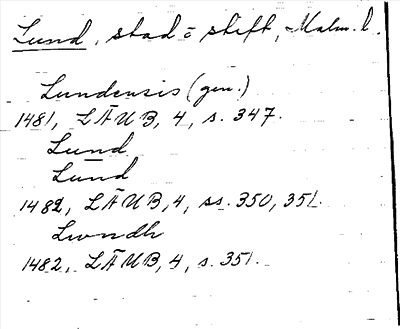 Lund, stad o stift, Malm. l.
Lundensis (gen.)
1481, LÄUB, 4, s. 347.
Lund
Lund
1482, LÄUB, 4, ss. 350, 351.
Lwndh
1482, LÄUB, 4, s. 351.